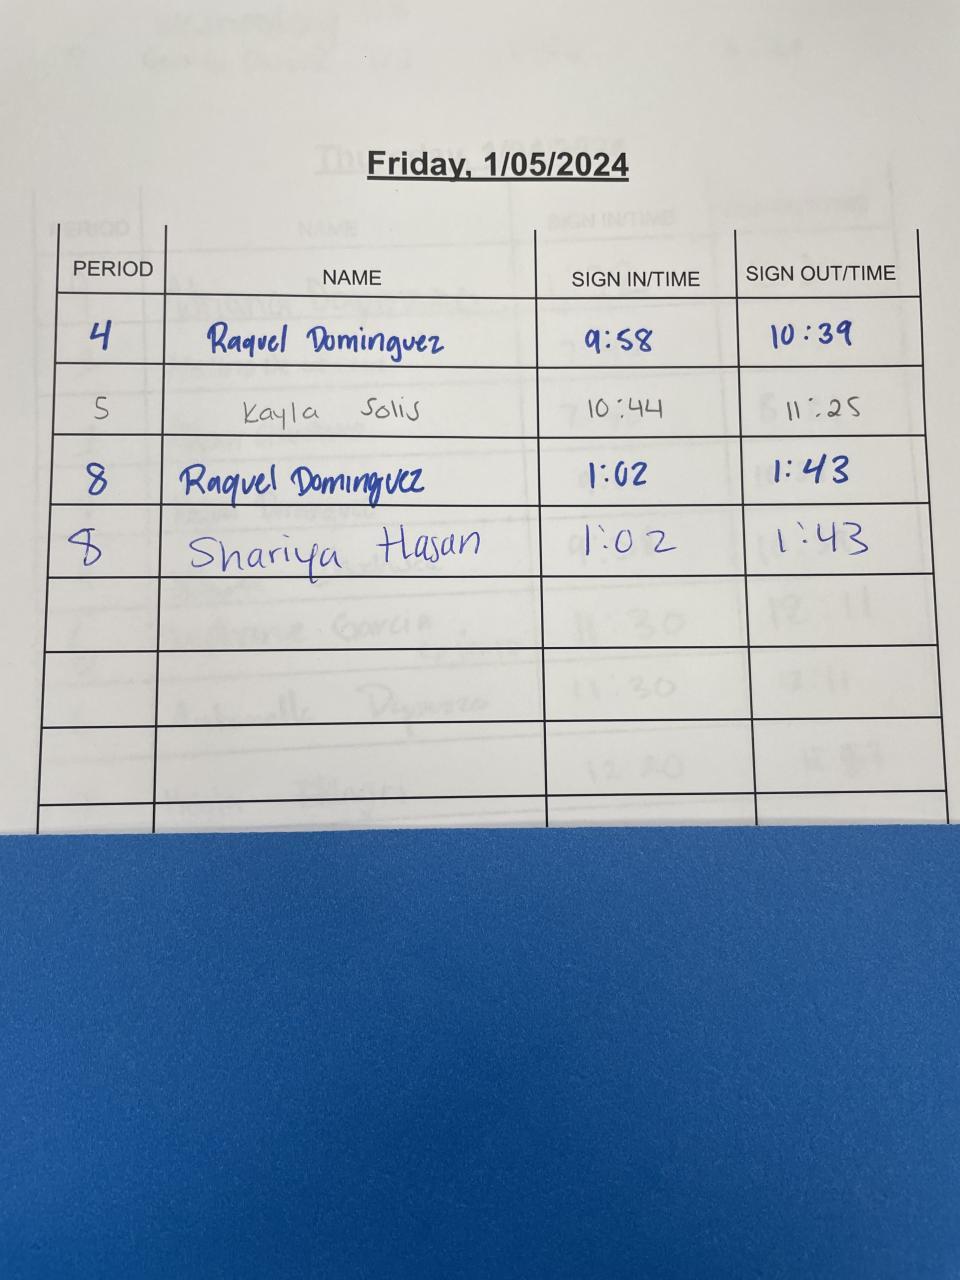 Friday, 1/05/2024
PERIOD NAME SIGN IN/TIME SIGN OUT/TIME
4 Raquel Dominguez 9:58 10:39
5 Kayla Solis 10:44 11:25
8 Raquel Dominguez 1:02 1:43
8 Shariya Hasan 1:02 1:43